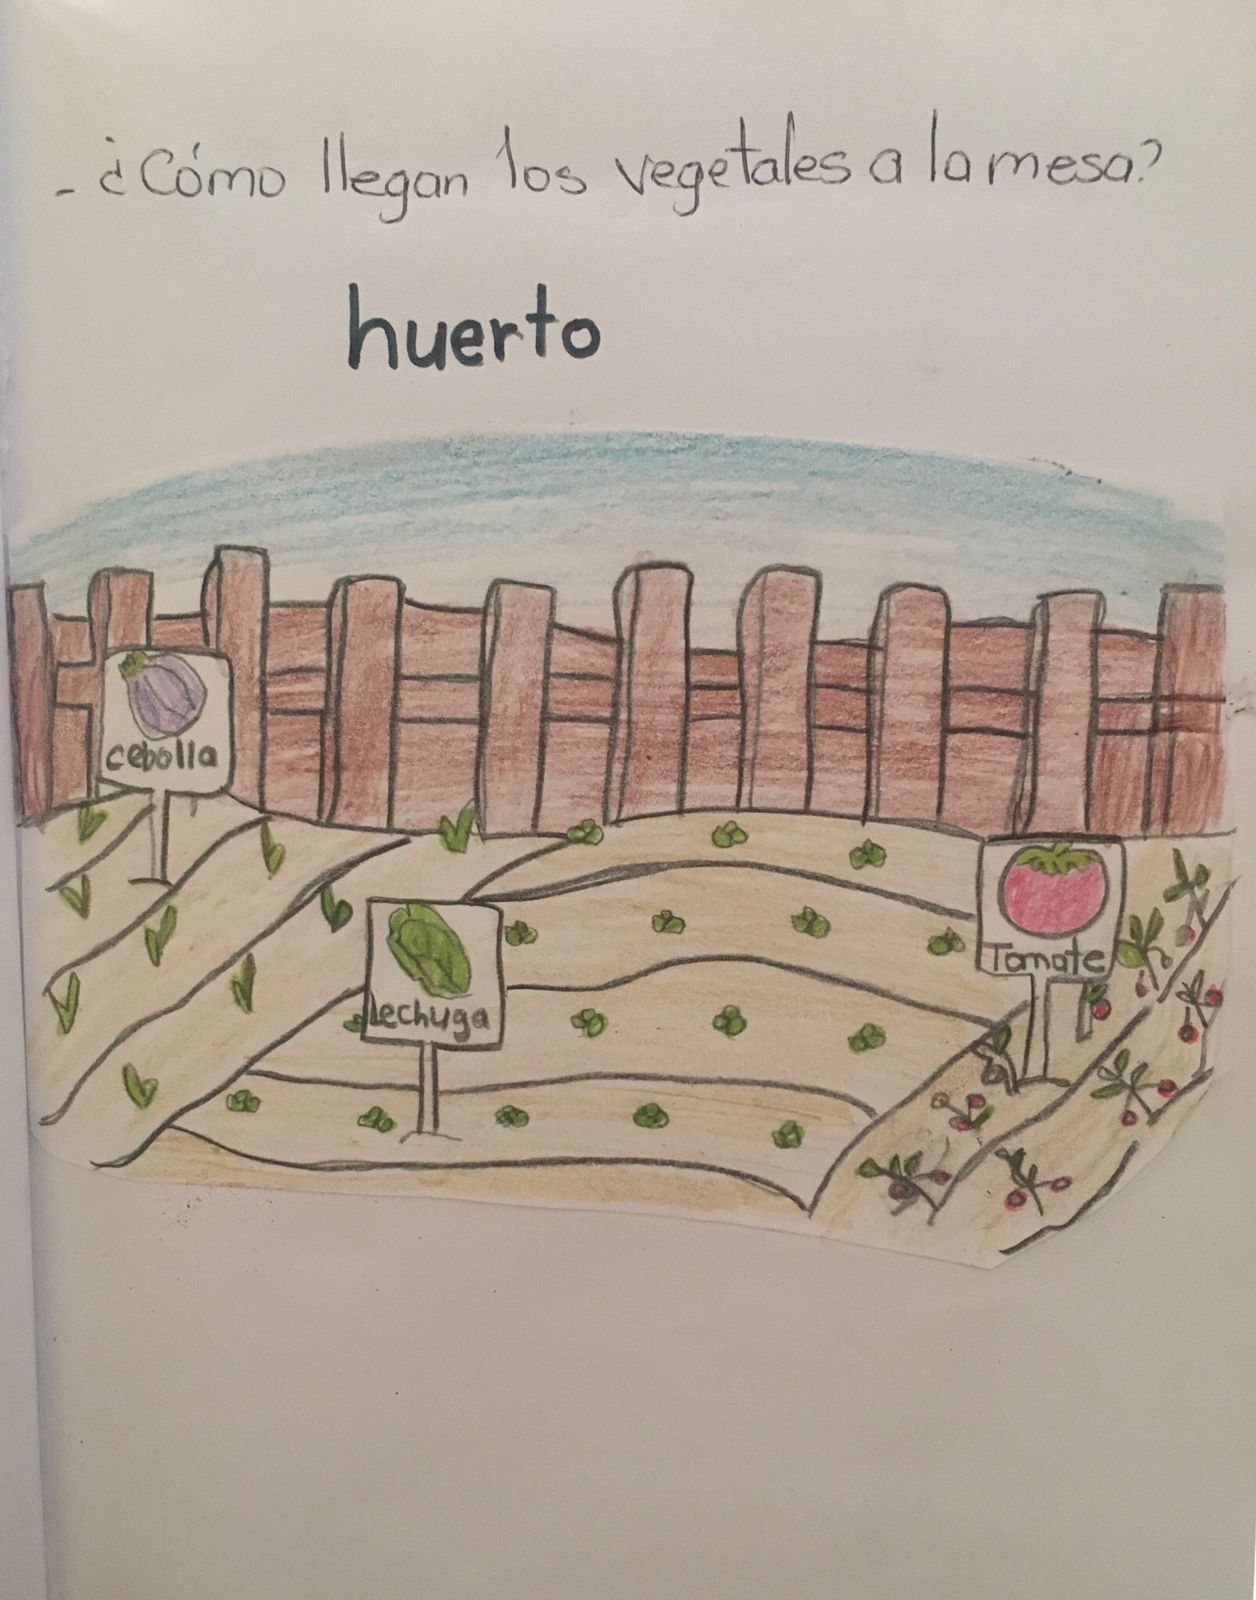 - ¿Cómo llegan los vegetales a la mesa?
huerto
cebolla
Lechuga
Tomate